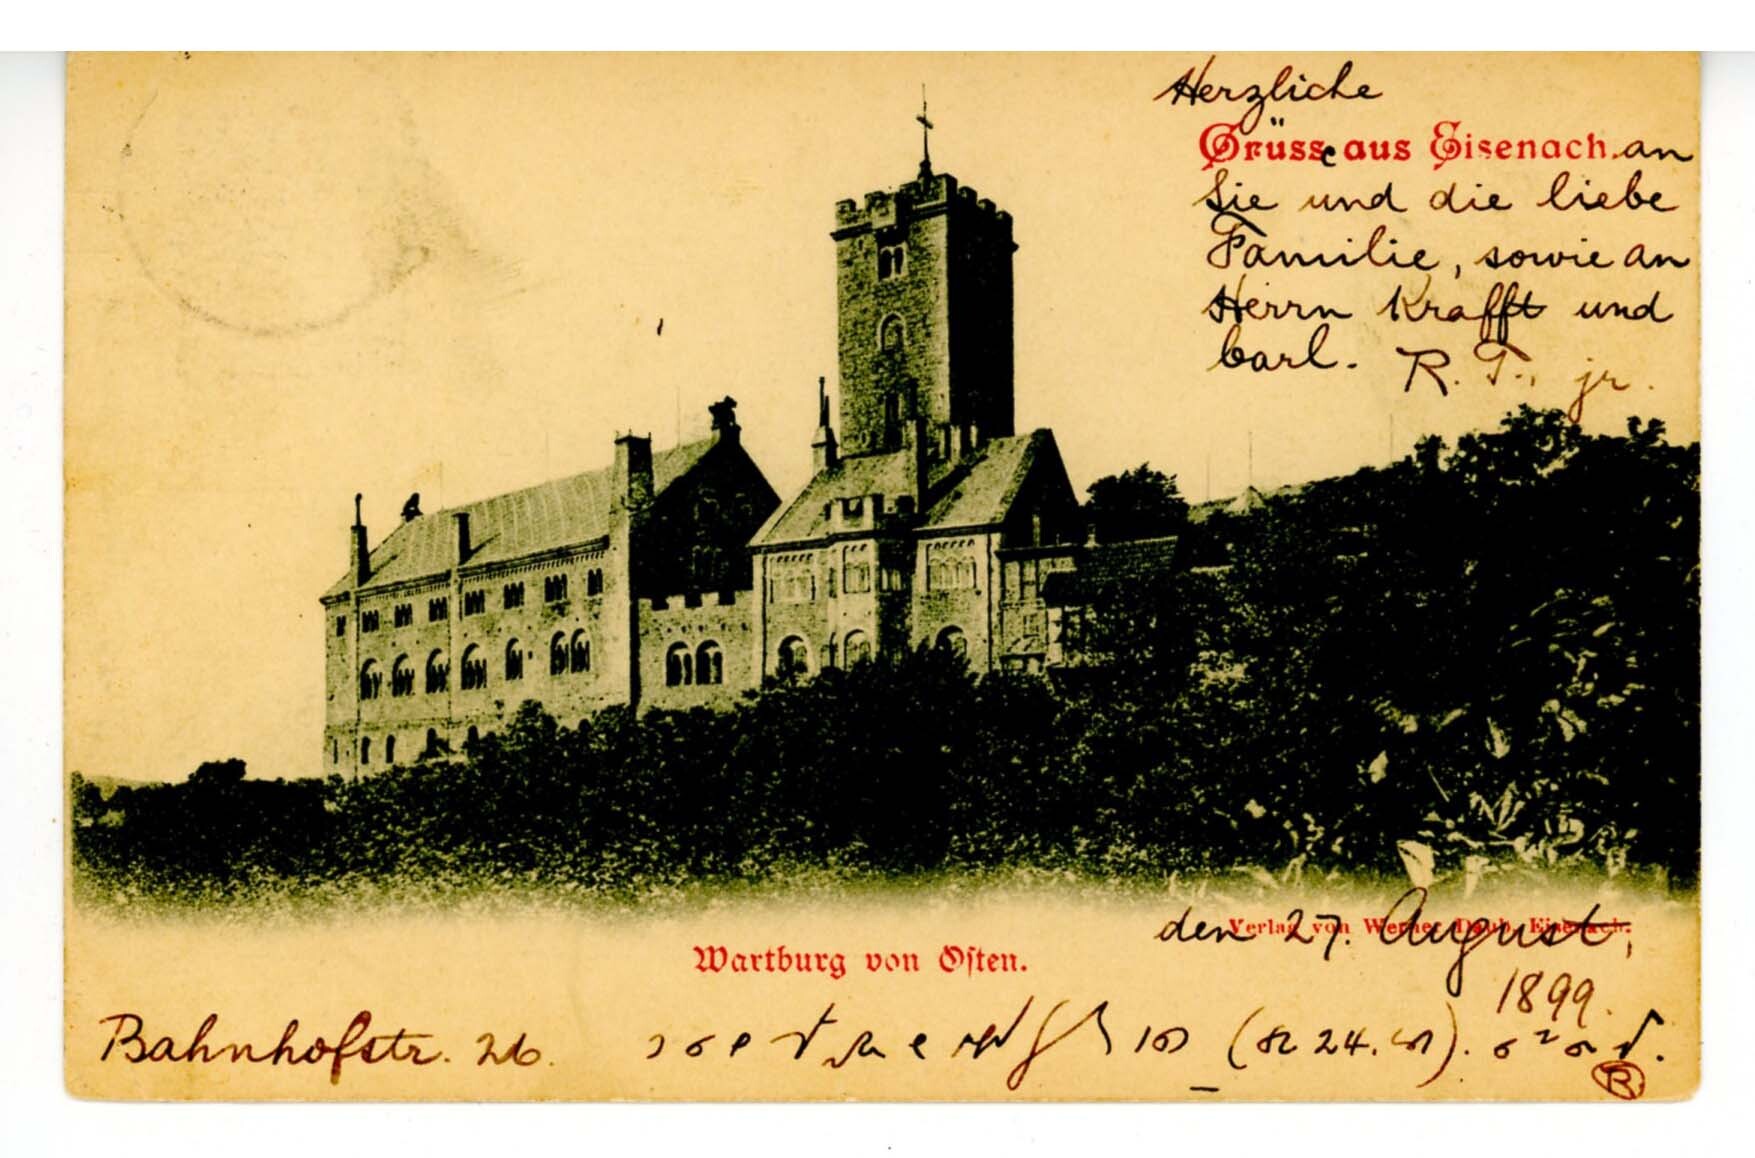 Herzliche
Grüsse aus Eisenach. an
Sie und die liebe
Familie, sowie an
Herrn Krafft und
Carl. R. T., jr.
Verlag von Werner Daub, Eisenach.
den 27. August,
1899.
Wartburg von Osten.
Bahnhofstr. 26.
(24.).
R